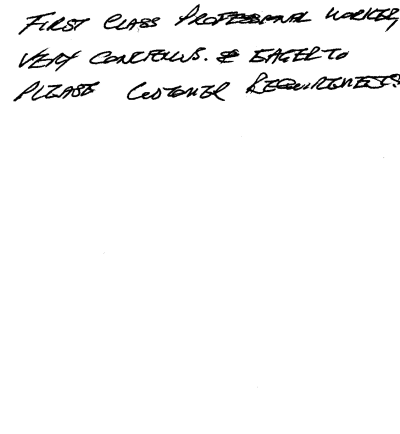 FIRST CLASS PROFESSIONAL WORKER,
VERY & EAGER TO
PLEASE CUSTOMER REQUIREMENTS